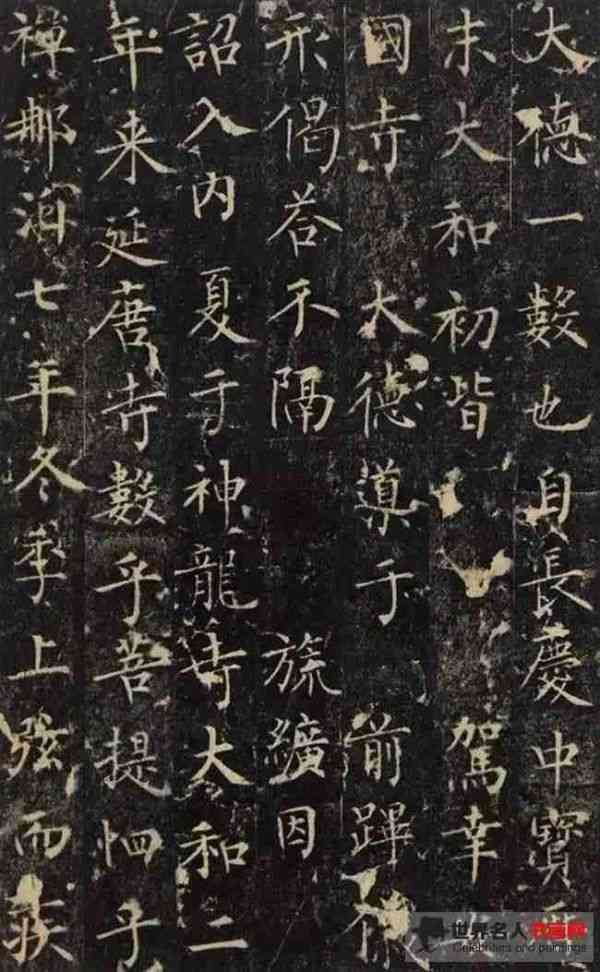 大德一數也自長慶中寶
末大和初皆駕幸
國寺大德導于前蹕
形偈荅不隔旒纊因
詔入內夏于神龍寺大和二
年来延唐寺數乎菩提恒乎
禪那洎七年冬季上弦而疾
世界名人书画
Celebriters and paintings